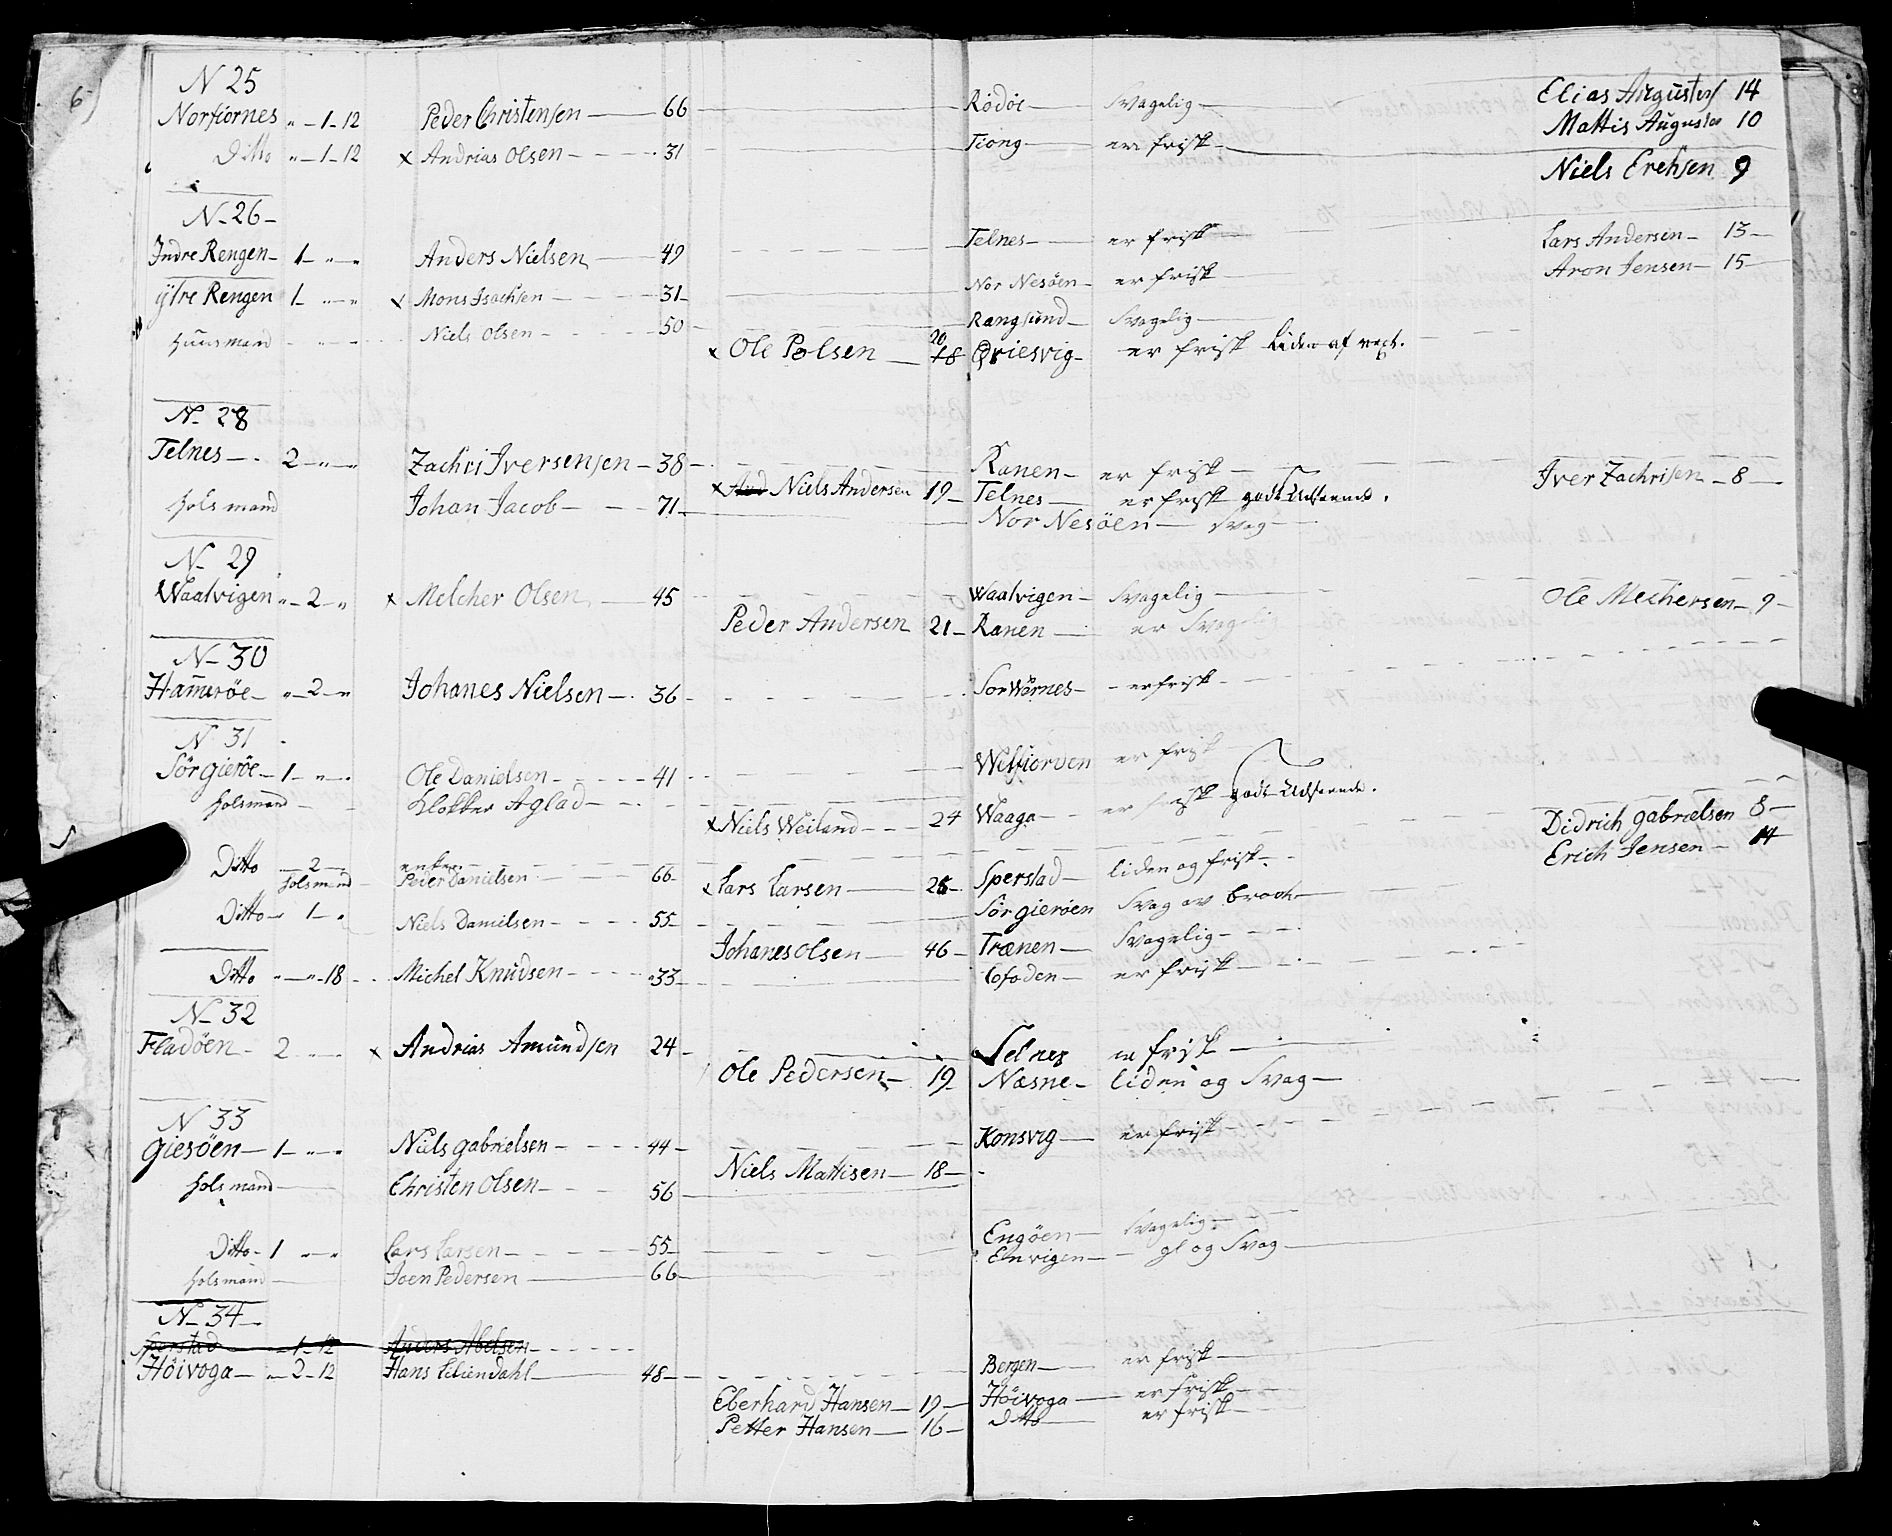 6
N 25
Norfiornes „ - 1 - 12 Peder Christensen 66 Rödöe Svagelig Elias Augustes 14
Mattis Augustes 10
Ditto „ - 1 - 12 x Andrias Olsen 31 Tiong er frisk
Niels Erchsen 9
N 26
Indre Rengen 1 - „ - „ Anders Nielsen 49 Telnes er frisk Lars Andersen 13
ÿtre Rengen 1 - „ - „ x Mons Isachsen 31 Nor Nesöen er frisk Aron Jensen 15
huusmand Niels Olsen 50 Rangsund Svagelig
x Ole Polsen 20 18 Qriesvig er frisk liden af vext.
N 28
Telnes 2 - „ - „ Zachri Iversensen 38 Ranen er frisk
x And Niels Andersen 19 Telnes er frisk godt Udseende. Iver Zachrisen 8
holsmand Johan Jacob 71 Nor Nesöen Svag
N 29
Waatvigen „ - 2 - „ x Melcher Olsen 45 Waatvigen Svagelig Ole Mechersen 9
Peder Andersen 21 Ranen er Svagelig
N 30
Hameröe „ - 2 - „ Johanes Nielsen 36 Sor Wärnes er frisk
N 31
Sörgieröe 1 - „ - „ Ole Danielsen 41 Welfiorden er frisk
holsmand Klokker Aglad
x Niels Weiland 24 Waaga er frisk godt Udseende.
Didrich gabrielsen 8
Ditto 2 enken Erich Jensen 14
holsmand Peder Danielsen 66 x Lars Larsen 25 Sperstad liden og frisk
Ditto 1 - „ Niels Danielsen 55 Sörgieröen Svag av brock
Johanes Olsen 46 Trænen Svagelig
Ditto „ - „ - 18 Michel Knudsen 33 Lofoden er frisk
N 32
Fladöen 2 x Andrias Amundsen 24 Selnes er frisk
Ole Pedersen 19 Næsne liden og Svag
N 33
giesöen 1 - „ - „ Niels gabrielsen 44 Konsvig er frisk
Niels Mattisen 18
holsmand Christen Olsen 56
Ditto 1 „ - „ Lars Larsen 55 Engöen Svagelig
holsmand Joen Pedersen 66 Elnvigen gl og Svag
N 34
Sperstad 1 - 12 Anders Abelsen
Höivoga „ - 2 - 12 Hans Liliendahl 48 Bergen er frisk
Eberhard Hansen 19 Höivoga er frisk
Petter Hansen 16 Ditto er frisk